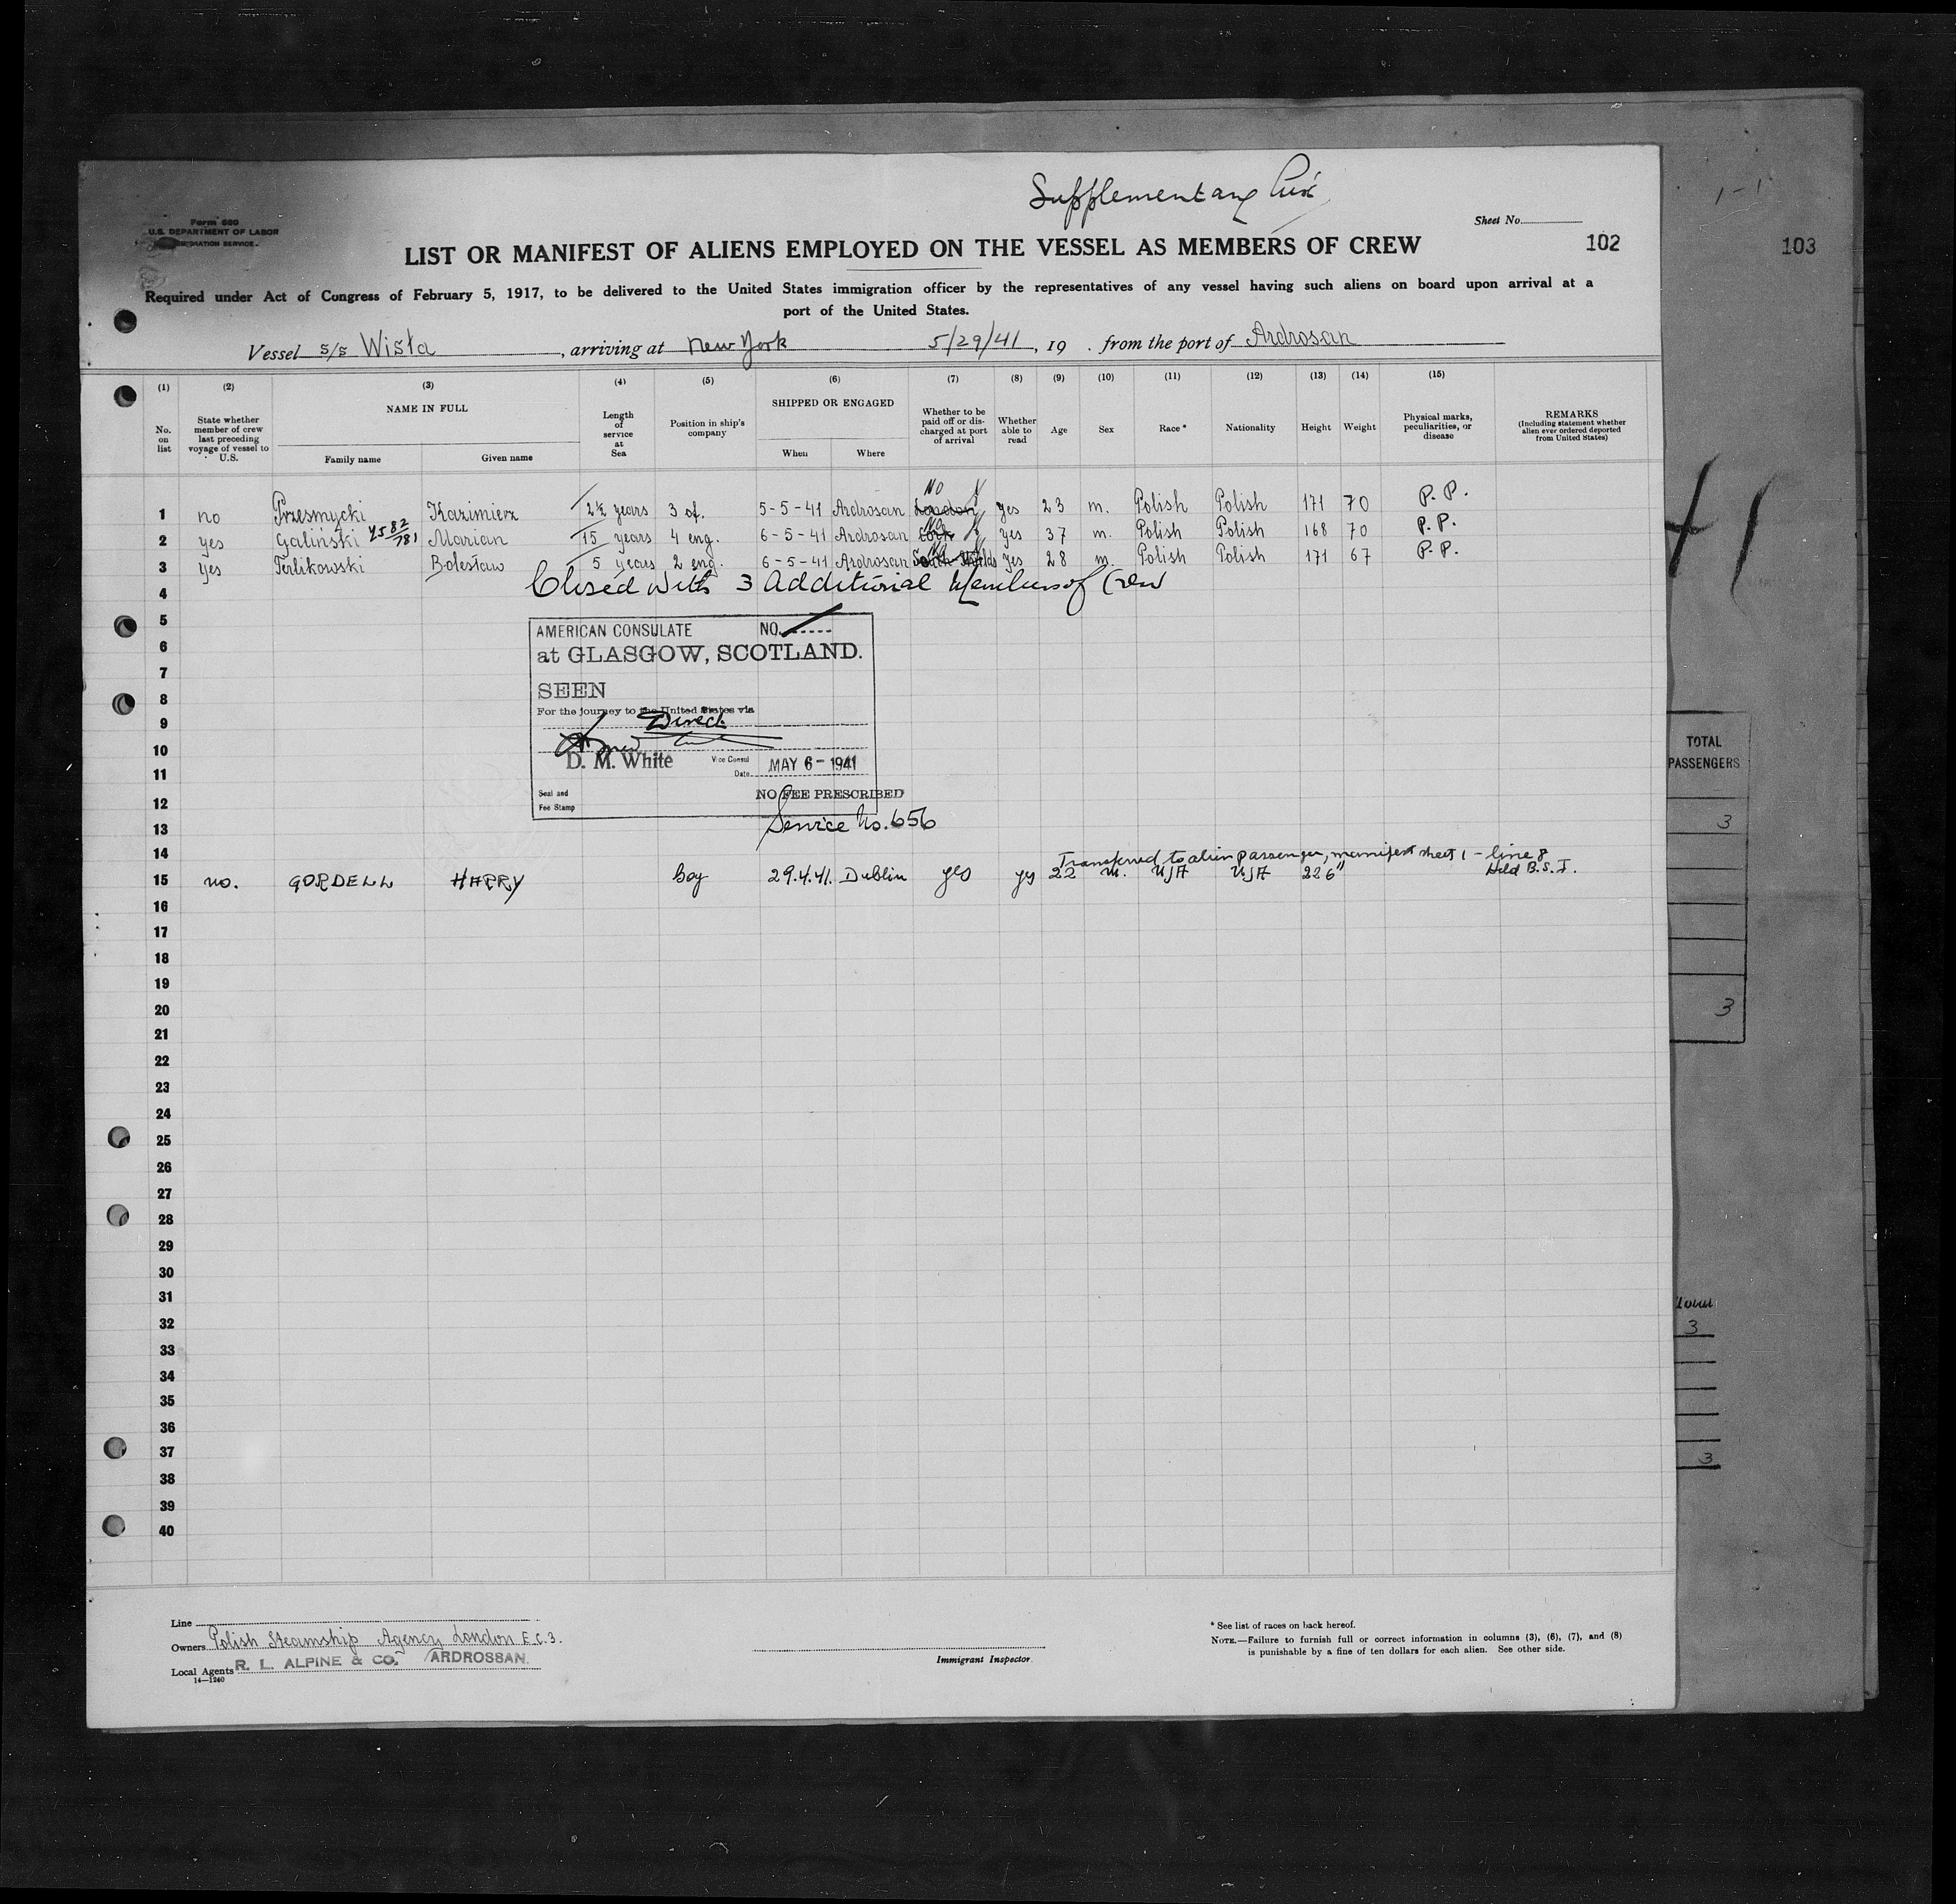 Supplementary List
Form 680
U.S. DEPARTMENT OF LABOR
IMMIGRATION SERVICE
Sheet No.
LIST OR MANIFEST OF ALIENS EMPLOYED ON THE VESSEL AS MEMBERS OF CREW
102
103
Required under Act of Congress of February 5, 1917, to be delivered to the United States immigration officer by the representatives of any vessel having such aliens on board upon arrival at a
port of the United States.
Vessel s/s Wisła, arriving at New York 5/29/41, 19 . from the port of Ardrosan
(1) (2) (3) (4) (5) (6) (7) (8) (9) (10) (11) (12) (13) (14) (15)
No. on list
State whether member of crew last preceding voyage of vessel to U.S.
NAME IN FULL
Family name Given name
Length of service at Sea
Position in ship's company
SHIPPED OR ENGAGED
When Where
Whether to be paid off or discharged at port of arrival
Whether able to read
Age
Sex
Race *
Nationality
Height
Weight
Physical marks, peculiarities, or disease
REMARKS
(Including statement whether alien ever ordered deported from United States)
1 no Przesmycki Kazimierz 2½ years 3 of. 5-5-41 Ardrosan London No yes 23 m. Polish Polish 171 70 P.P.
2 yes Galiński Marian 15 years 4 eng. 6-5-41 Ardrosan Cork No yes 37 m. Polish Polish 168 70 P.P.
3 yes Terlikowski Bolesław 5 years 2 eng. 6-5-41 Ardrosan South Shields No yes 28 m. Polish Polish 171 67 P.P.
Closed with 3 Additional Members of Crew
4
5
6
7
8
9
10
11
12
13
AMERICAN CONSULATE NO.
at GLASGOW, SCOTLAND.
SEEN
For the journey to the United States via
Direct
D. M. White Vice Consul
Date MAY 6 - 1941
Seal and
Fee Stamp
NO FEE PRESCRIBED
Service No. 656
14 Transferred to alien passenger, manifest sheet 1 - line 8
15 no. GORDELL HARRY boy 29.4.41. Dublin yes yes 22 m. USA USA 226" Held B.S.I.
16
17
18
19
20
21
22
23
24
25
26
27
28
29
30
31
32
33
34
35
36
37
38
39
40
Line
Owners Polish Steamship Agency London E.C.3.
Local Agents R. L. ALPINE & CO. ARDROSSAN.
14—1240
Immigrant Inspector.
* See list of races on back hereof.
NOTE.—Failure to furnish full or correct information in columns (3), (6), (7), and (8)
is punishable by a fine of ten dollars for each alien. See other side.
41
TOTAL
PASSENGERS
3
3
Total
3
3